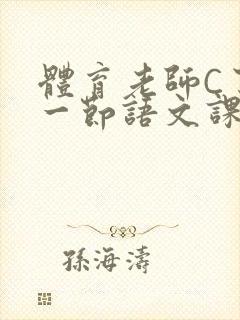 體育老師C
一節語文課
孫海濤